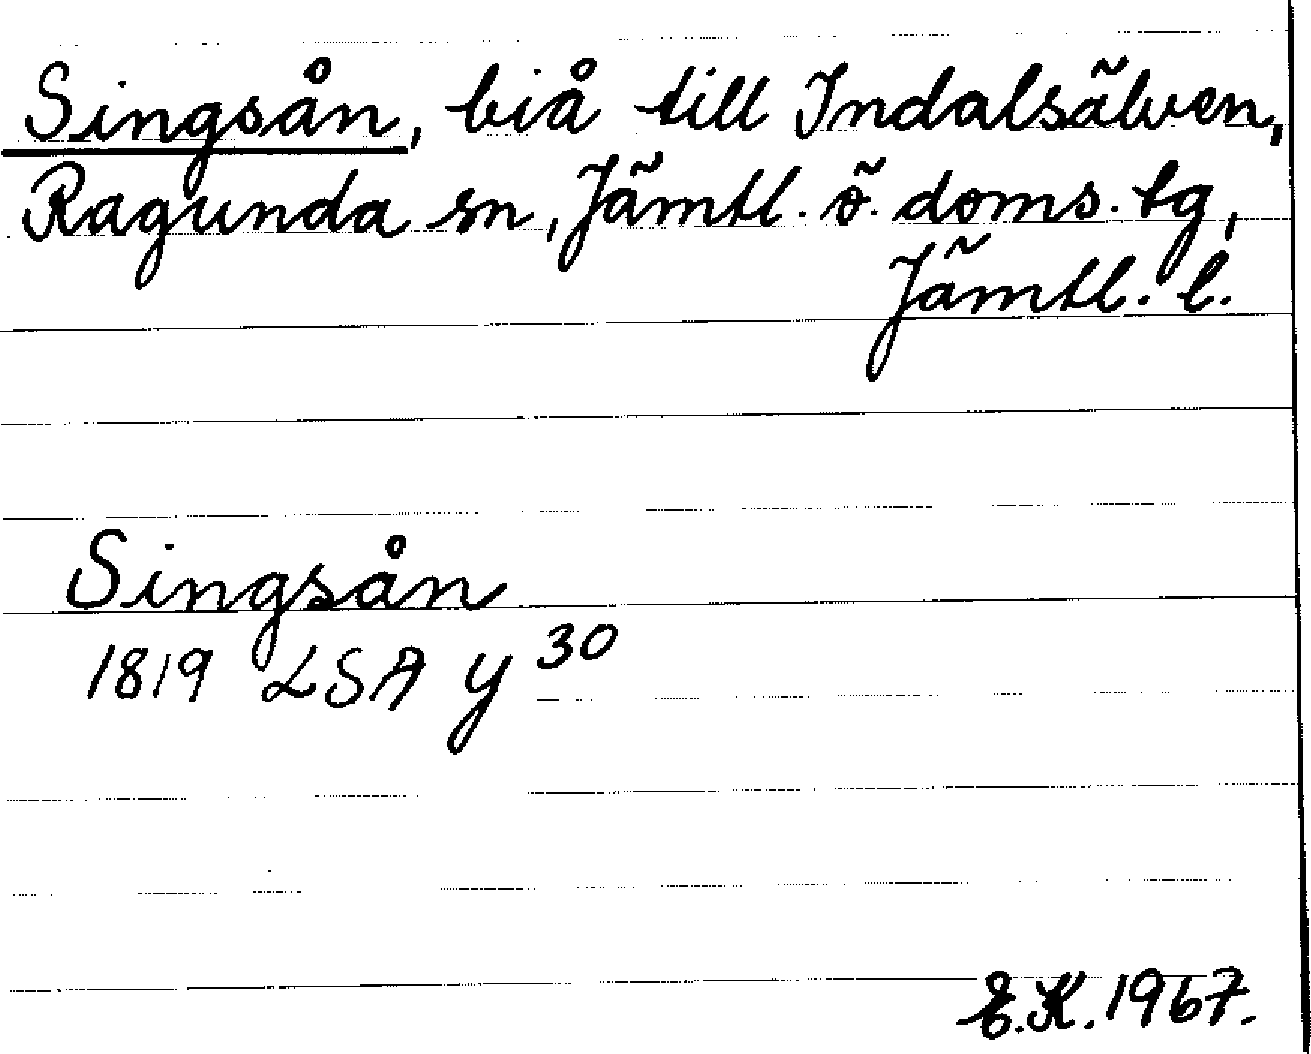 Singsån, biå till Indalsälven,
Ragunda sn, Jämtl. ö. doms. tg,
Jämtl. l.
Singsån
1819 LSA y 30
E.K. 1967.